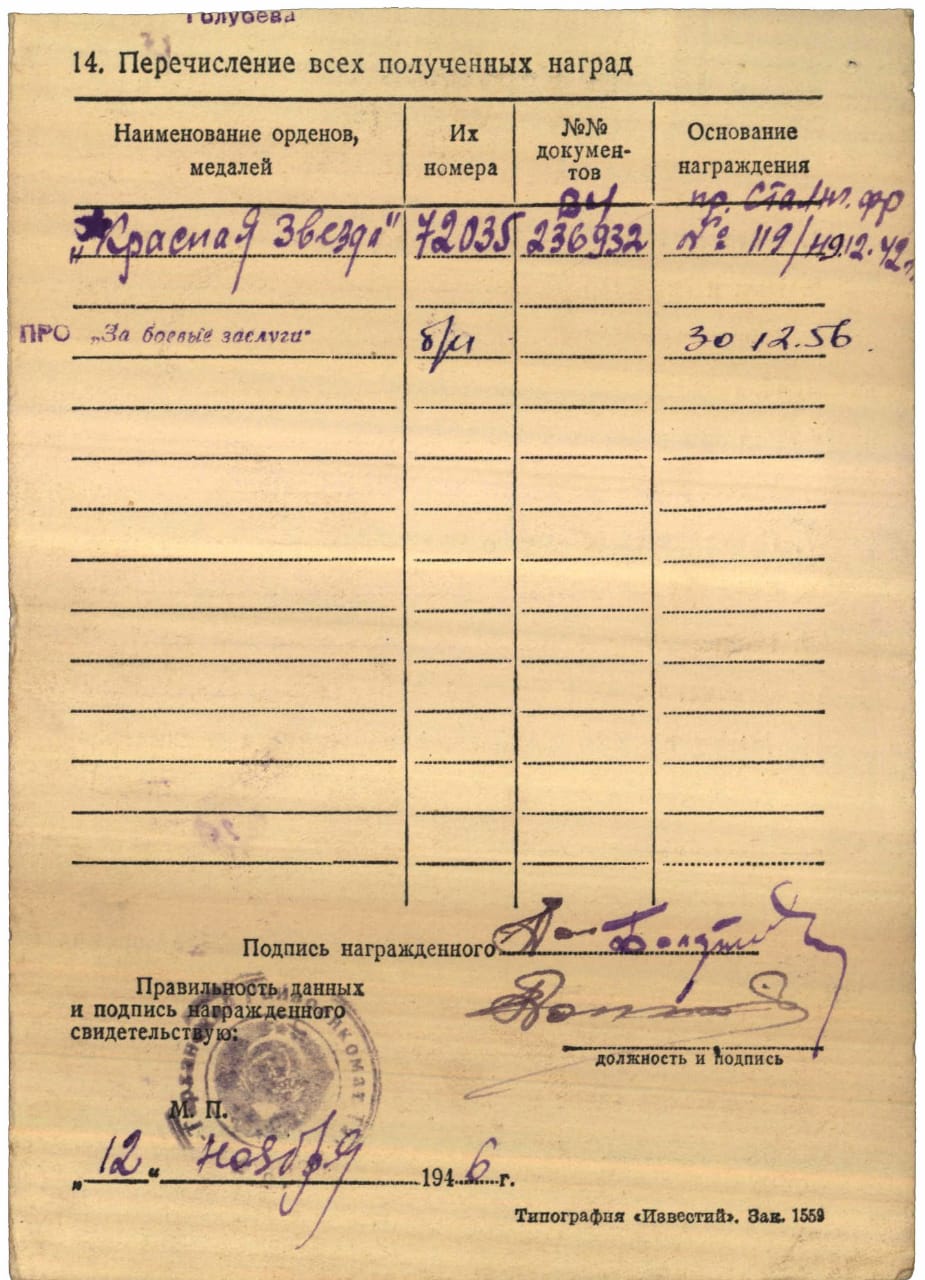 Голубева
14. Перечисление всех полученных наград
Наименование орденов, медалей
Их номера
№№ докумен-
тов
Основание награждения
пр. Стал. фр
„Красная Звезда" 72035 236932 № 119/н 9.12.42г.
ПРО „За боевые заслуги" б/н 30 12.56.
Подпись награжденного
Правильность данных
и подпись награжденного
свидетельствую:
должность и подпись
М. П.
„12" ноября 1946 г.
Типография «Известий». Зак. 1559